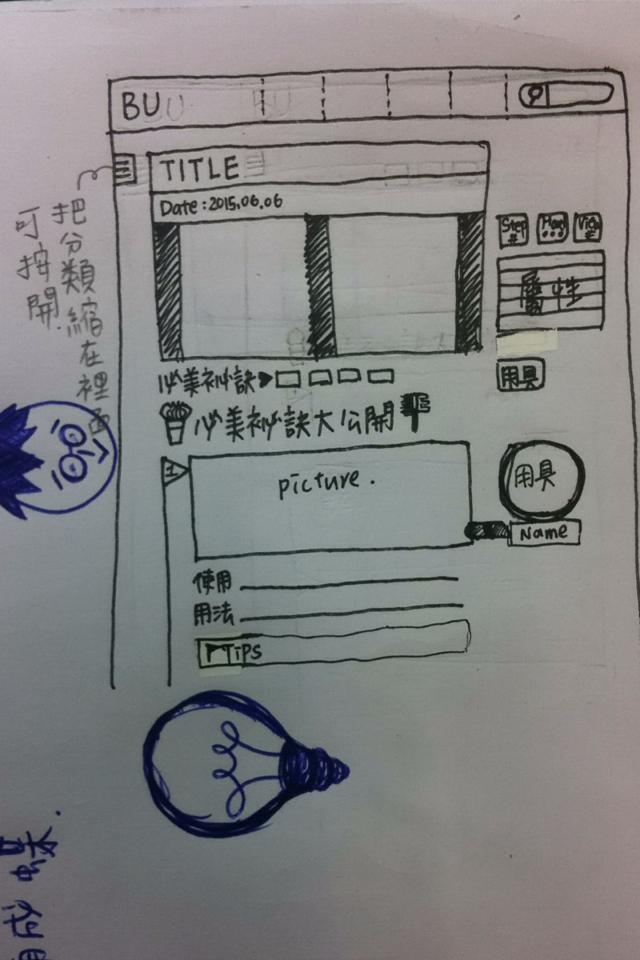 BU
TITLE
Date:2015.06.06
把分類縮在裡面
可按開.
Step
#
View
屬性
必美祕訣
用具
必美祕訣大公開
1
picture.
用具
Name
使用
用法
Tips